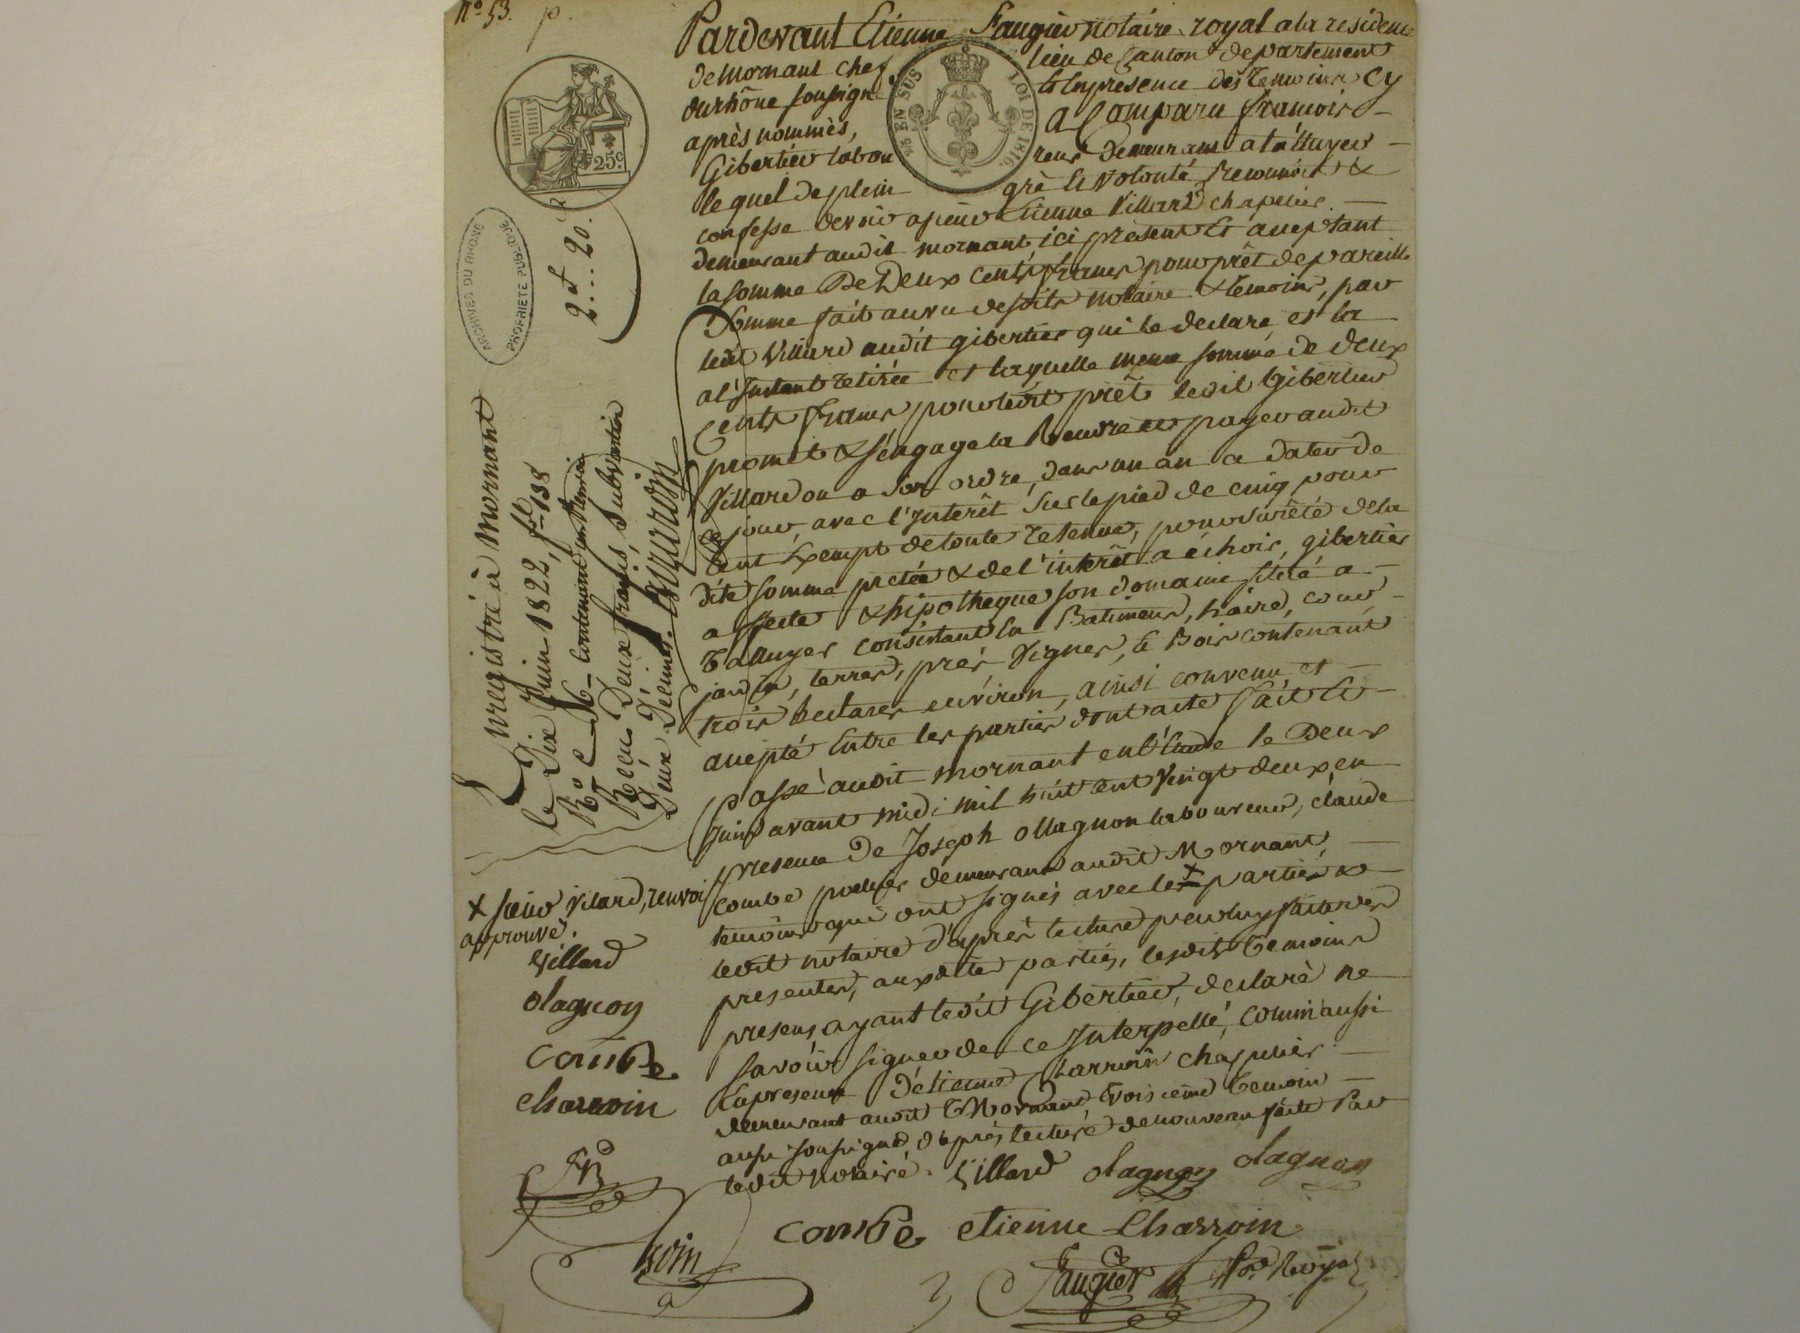 N.º 53.
Pardevant Etienne Faugier notaire royal a la residence
de mornant chef lieu de Canton departement
du rhône soussigné & En presence des temoins cy
après nommés, a Comparu françois
Gibertier laboureur demeurant a tálluyer
le quel de plein gré & volonté, reconnoit &
confesse devoir a sieur Etienne Villard chapelier
demeurant audit mornant ici présent & acceptant
la somme De Deux cents francs pour prêt de pareille
somme fait au vu desdits notaire & temoins, par
ledit Villard audit gibertier qui le declare, et la
a l'Instant retirée et laquelle meme somme de deux
Cents francs pour ledit prêt ledit Gibertier
promet & s'engage la Rendre et payer audit
Villard ou a son ordre, dans un an a dater de
ce jour, avec l'Interêt sur le pied de cinq pour
Cent Exempt de toute retenue, pour sureté de la
dite somme pretée & de l'interêt a échoir, gibertier
affecte & hipotheque son domaine situé a
Talluyer consistant En Batimens, haire, cour
jardin, terres, prés Vignes, & Bois contenant
trois hectares environ, ainsi convenu et
accepté Entre les parties dont acte fait &
passé audit mornant en l'Etude le Deux
Juin avant midi mil huit cent vingt deux en
presence de Joseph ollagnon laboureur, claude
combe demeurant audit Mornant,
temoins qui ont signés avec le x parties &
ledit notaire d'après lecture
presentes, aux dites parties, lesdits temoins
presens, ayant ledit Gibertier, declaré ne
savoir signer de ce Interpellé, comm'aussi
En presence d'étienne charroin chapelier
demeurant audit Mornant troisieme temoin
aussi soussigné d'après lecture de nouveau faite Par
ledit notaire. Villard olagnon olagnon
combe etienne Charroin
Faugier Nre Royal
25.c
25 EN SUS
LOI DE 1816
ARCHIVES DU RHONE
PROPRIETE PUBLIQUE
2f..20.c
Enregistré à Mornant
le Dix Juin 1822, f.º 138
R.º C. 56. contenant un Renvoi
Reçu Deux francs, subvention
Deux Décimes Esquirron
x sieur vilard, renvoi
approuvé.
Villard
olagnon
combe
charroin